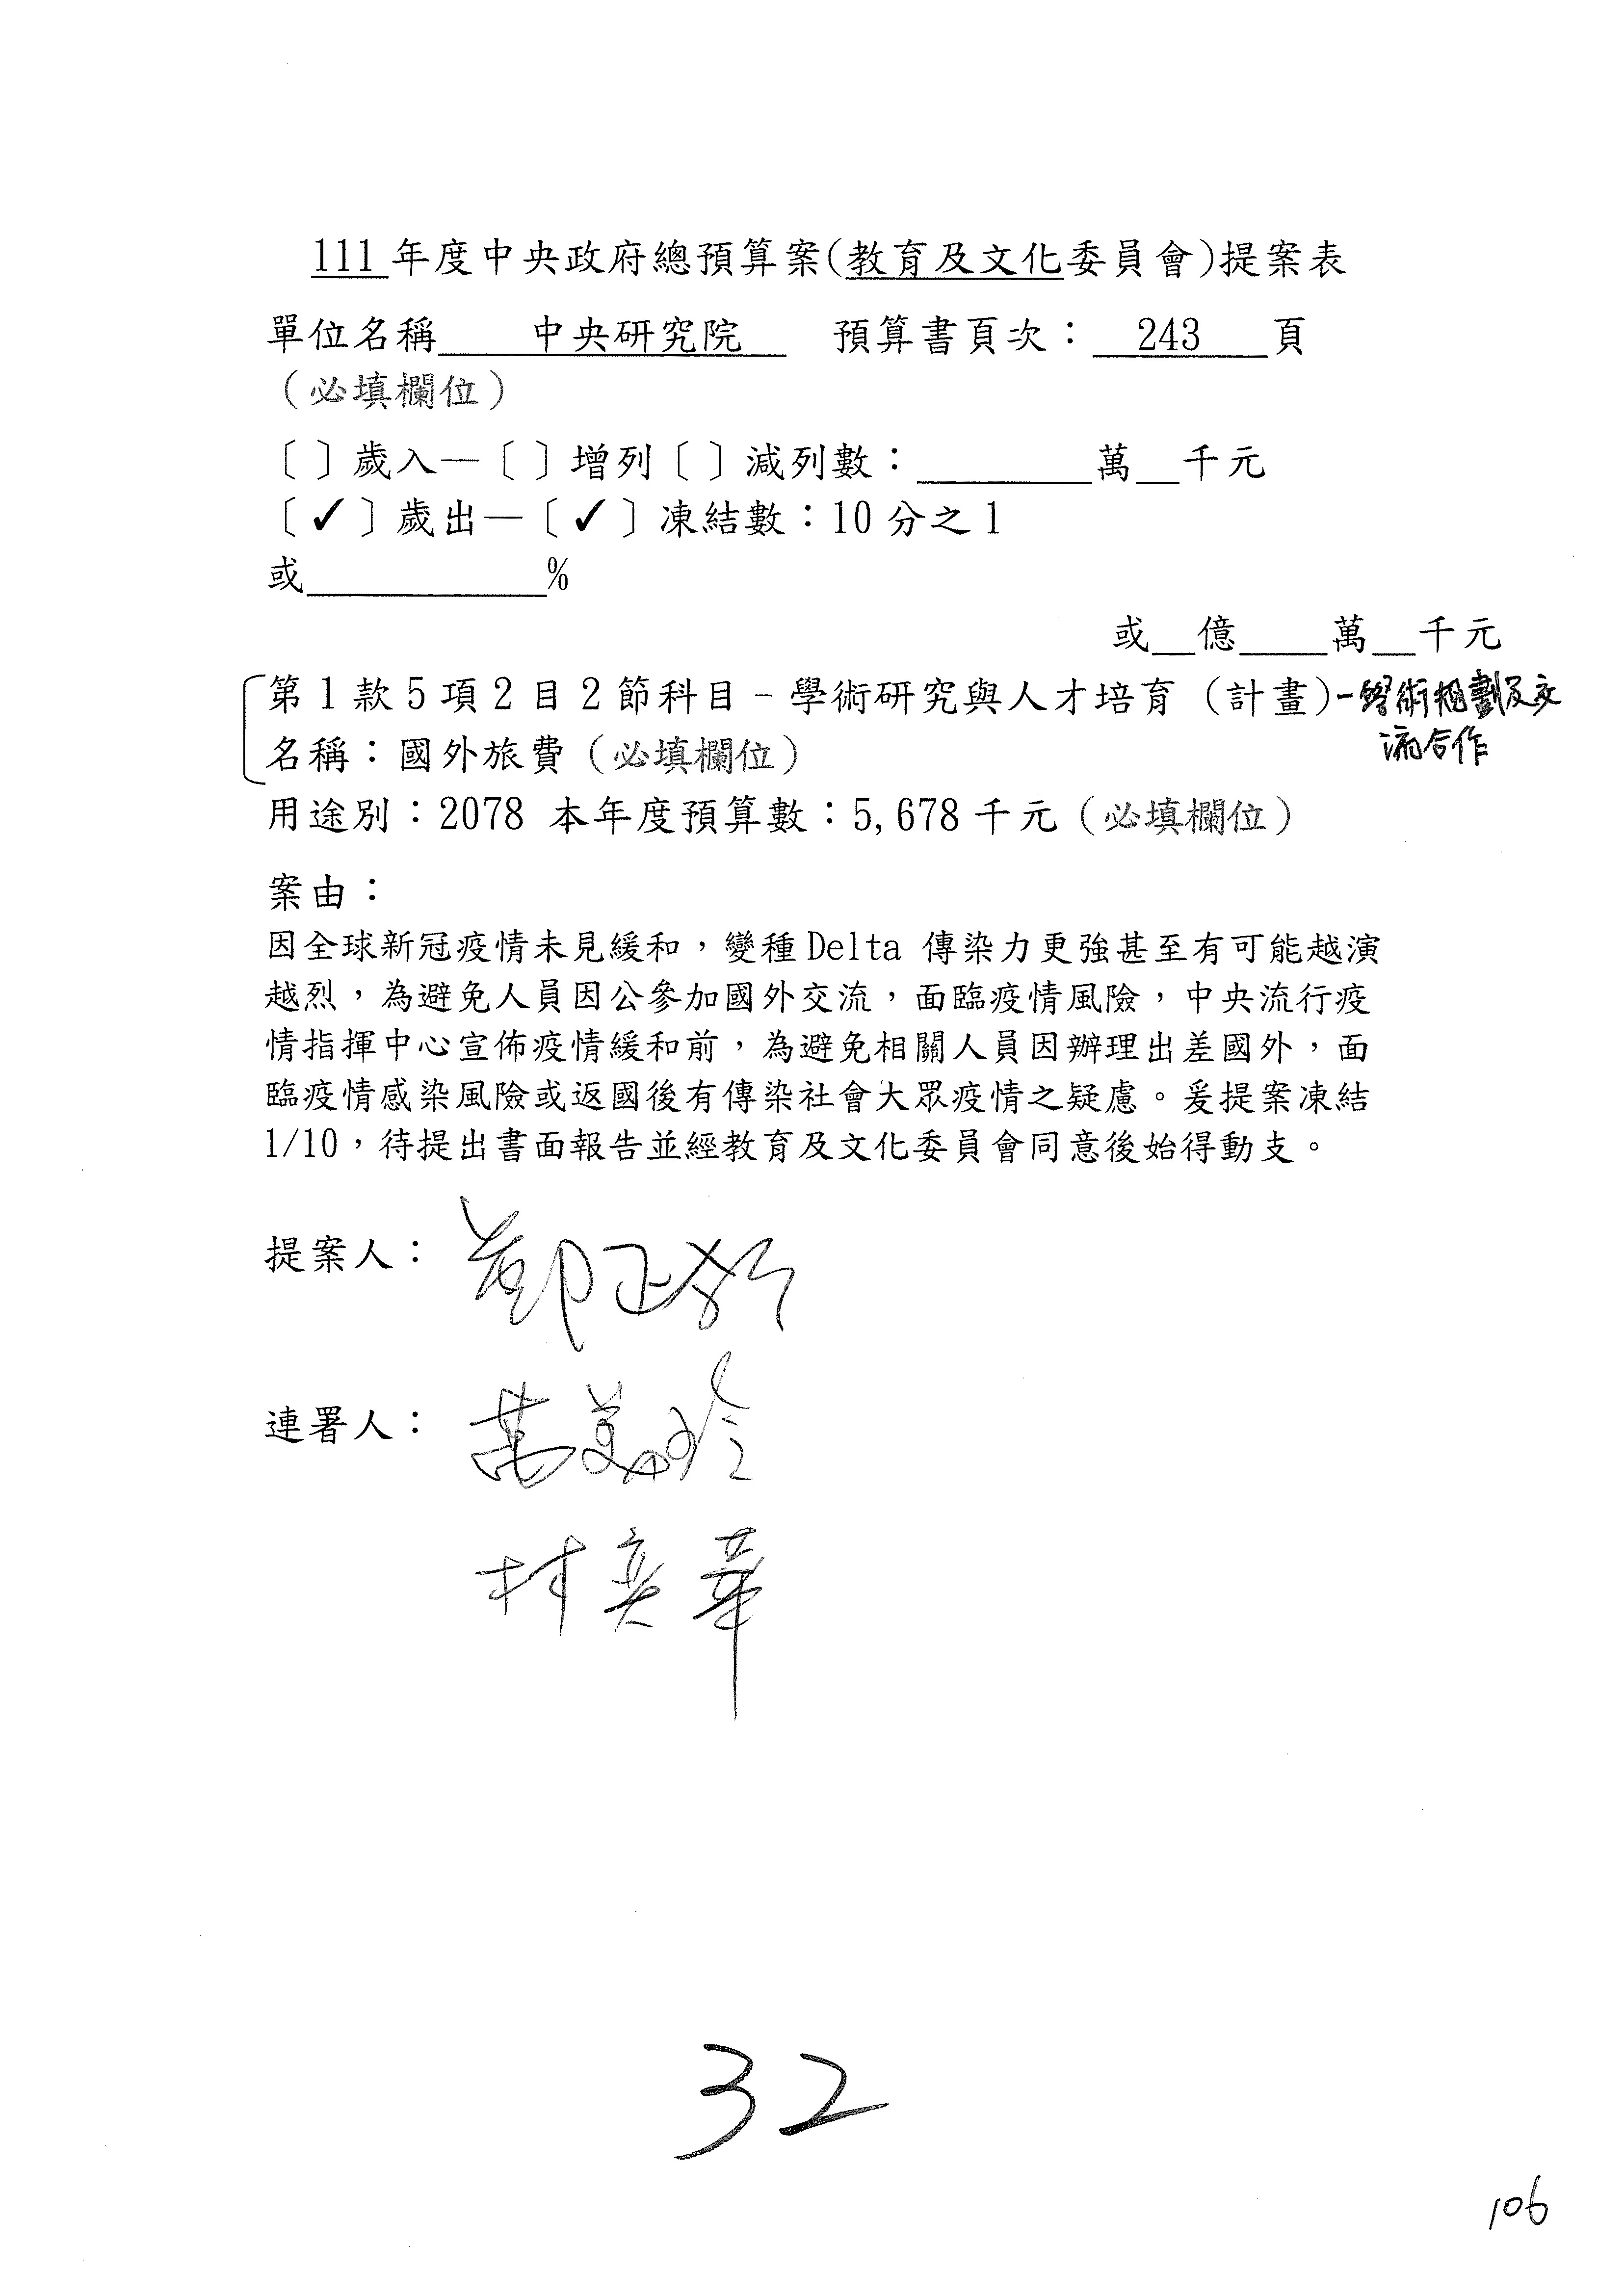 111年度中央政府總預算案(教育及文化委員會)提案表
單位名稱 中央研究院 預算書頁次：243頁
（必填欄位）
〔 〕歲入—〔 〕增列〔 〕減列數：________萬__千元
〔✓〕歲出—〔✓〕凍結數：10分之1
或___________%
或__億____萬__千元
第1款5項2目2節科目－學術研究與人才培育（計畫）-學術規劃及交
流合作
名稱：國外旅費（必填欄位）
用途別：2078 本年度預算數：5,678千元（必填欄位）
案由：
因全球新冠疫情未見緩和，變種Delta 傳染力更強甚至有可能越演
越烈，為避免人員因公參加國外交流，面臨疫情風險，中央流行疫
情指揮中心宣佈疫情緩和前，為避免相關人員因辦理出差國外，面
臨疫情感染風險或返國後有傳染社會大眾疫情之疑慮。爰提案凍結
1/10，待提出書面報告並經教育及文化委員會同意後始得動支。
提案人：鄭正鈐
連署人：萬美玲
林奕華
32
106